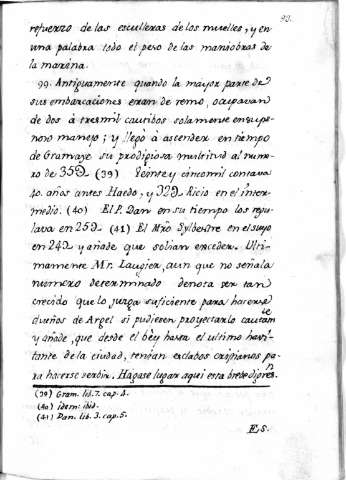 93.
refuerzo de las escolleras de los muelles, y en
una palabra todo el peso de las maniobras de
la marina.
99. Antiguamente quando la mayor parte de
sus embarcaciones eran de remo, ocupavan
de dos à tres mil cautibos solamente en su pe-
noso manejo; y llegò à ascender en tiempo
de Gramaye su prodigiosa multitud al nume-
ro de 35@ (39) Veinte y cinco mil contava
40. años antes Haedo, y 32@ Ricio en el inter-
medio. (40) El P. Dan en su tiempo los regu-
lava en 25@ (41) El Mro Sylbestre en el suyo
en 24@ y añade que solian exceder. Ulti-
mamente Mr. Laugier, aun que no señala
numero determinado denota ser tan
crecido que lo juzga suficiente para hacerse
dueños de Argel si pudiesen proyectarlo cautam.te
y añade, que desde el bey hasta el ultimo havi-
tante de la ciudad, tenian esclabos cristianos pa-
ra hacerse serbir. Hagase lugar aqui esta brebe digres.n
(39) Gram. lib. 7. cap. 4.
(40) idem: ibid.
(41) Dan. lib. 3. cap. 5.
Es.